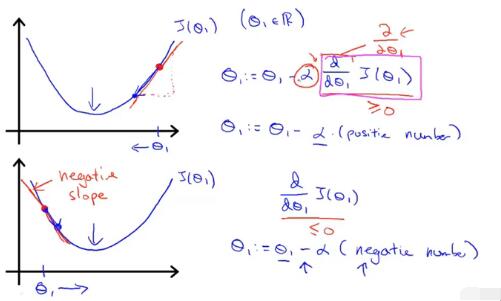 J(θ₁) (θ₁ ∈ ℝ)
∂
∂θ₁
θ₁ := θ₁ - α d/dθ₁ J(θ₁)
≥ 0
θ₁ := θ₁ - α · (positive number)
θ₁
negative
slope
J(θ₁)
d/dθ₁ J(θ₁)
≤ 0
θ₁ := θ₁ - α (negative number)
θ₁